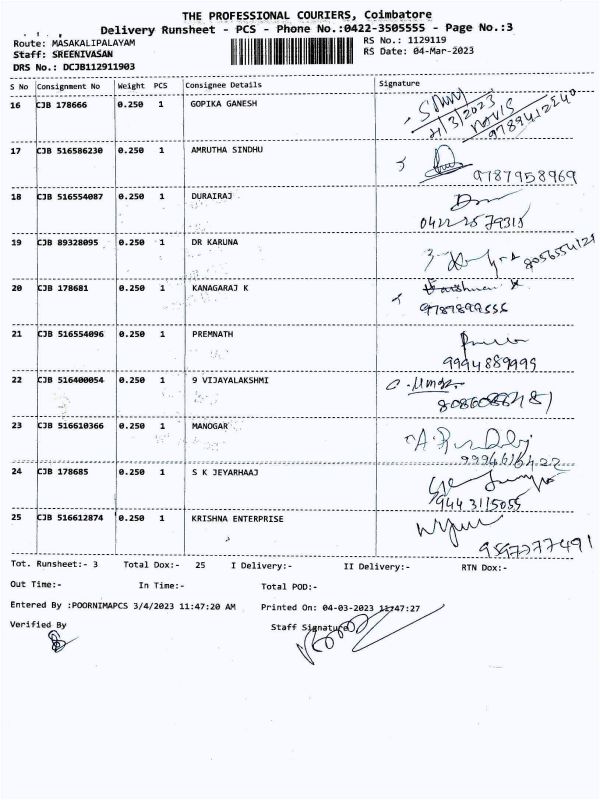 THE PROFESSIONAL COURIERS, Coimbatore
Delivery Runsheet - PCS - Phone No.:0422-3505555 - Page No.:3
Route: MASAKALIPALAYAM RS No.: 1129119
Staff: SREENIVASAN RS Date: 04-Mar-2023
DRS No.: DCJB112911903
S No Consignment No Weight PCS Consignee Details Signature
16 CJB 178666 0.250 1 GOPIKA GANESH
4/3/2023
9789412540
17 CJB 516586230 0.250 1 AMRUTHA SINDHU
9787958969
18 CJB 516554087 0.250 1 DURAIRAJ
0422 2579315
19 CJB 89328095 0.250 1 DR KARUNA
8056554121
20 CJB 178681 0.250 1 KANAGARAJ K
9787899555
21 CJB 516554096 0.250 1 PREMNATH
9994889995
22 CJB 516400054 0.250 1 9 VIJAYALAKSHMI
23 CJB 516610366 0.250 1 MANOGAR
24 CJB 178685 0.250 1 S K JEYARHAAJ
9443115055
25 CJB 516612874 0.250 1 KRISHNA ENTERPRISE
9597277491
Tot. Runsheet:- 3 Total Dox:- 25 I Delivery:- II Delivery:- RTN Dox:-
Out Time:- In Time:- Total POD:-
Entered By :POORNIMAPCS 3/4/2023 11:47:20 AM Printed On: 04-03-2023 11:47:27
Verified By Staff Signature